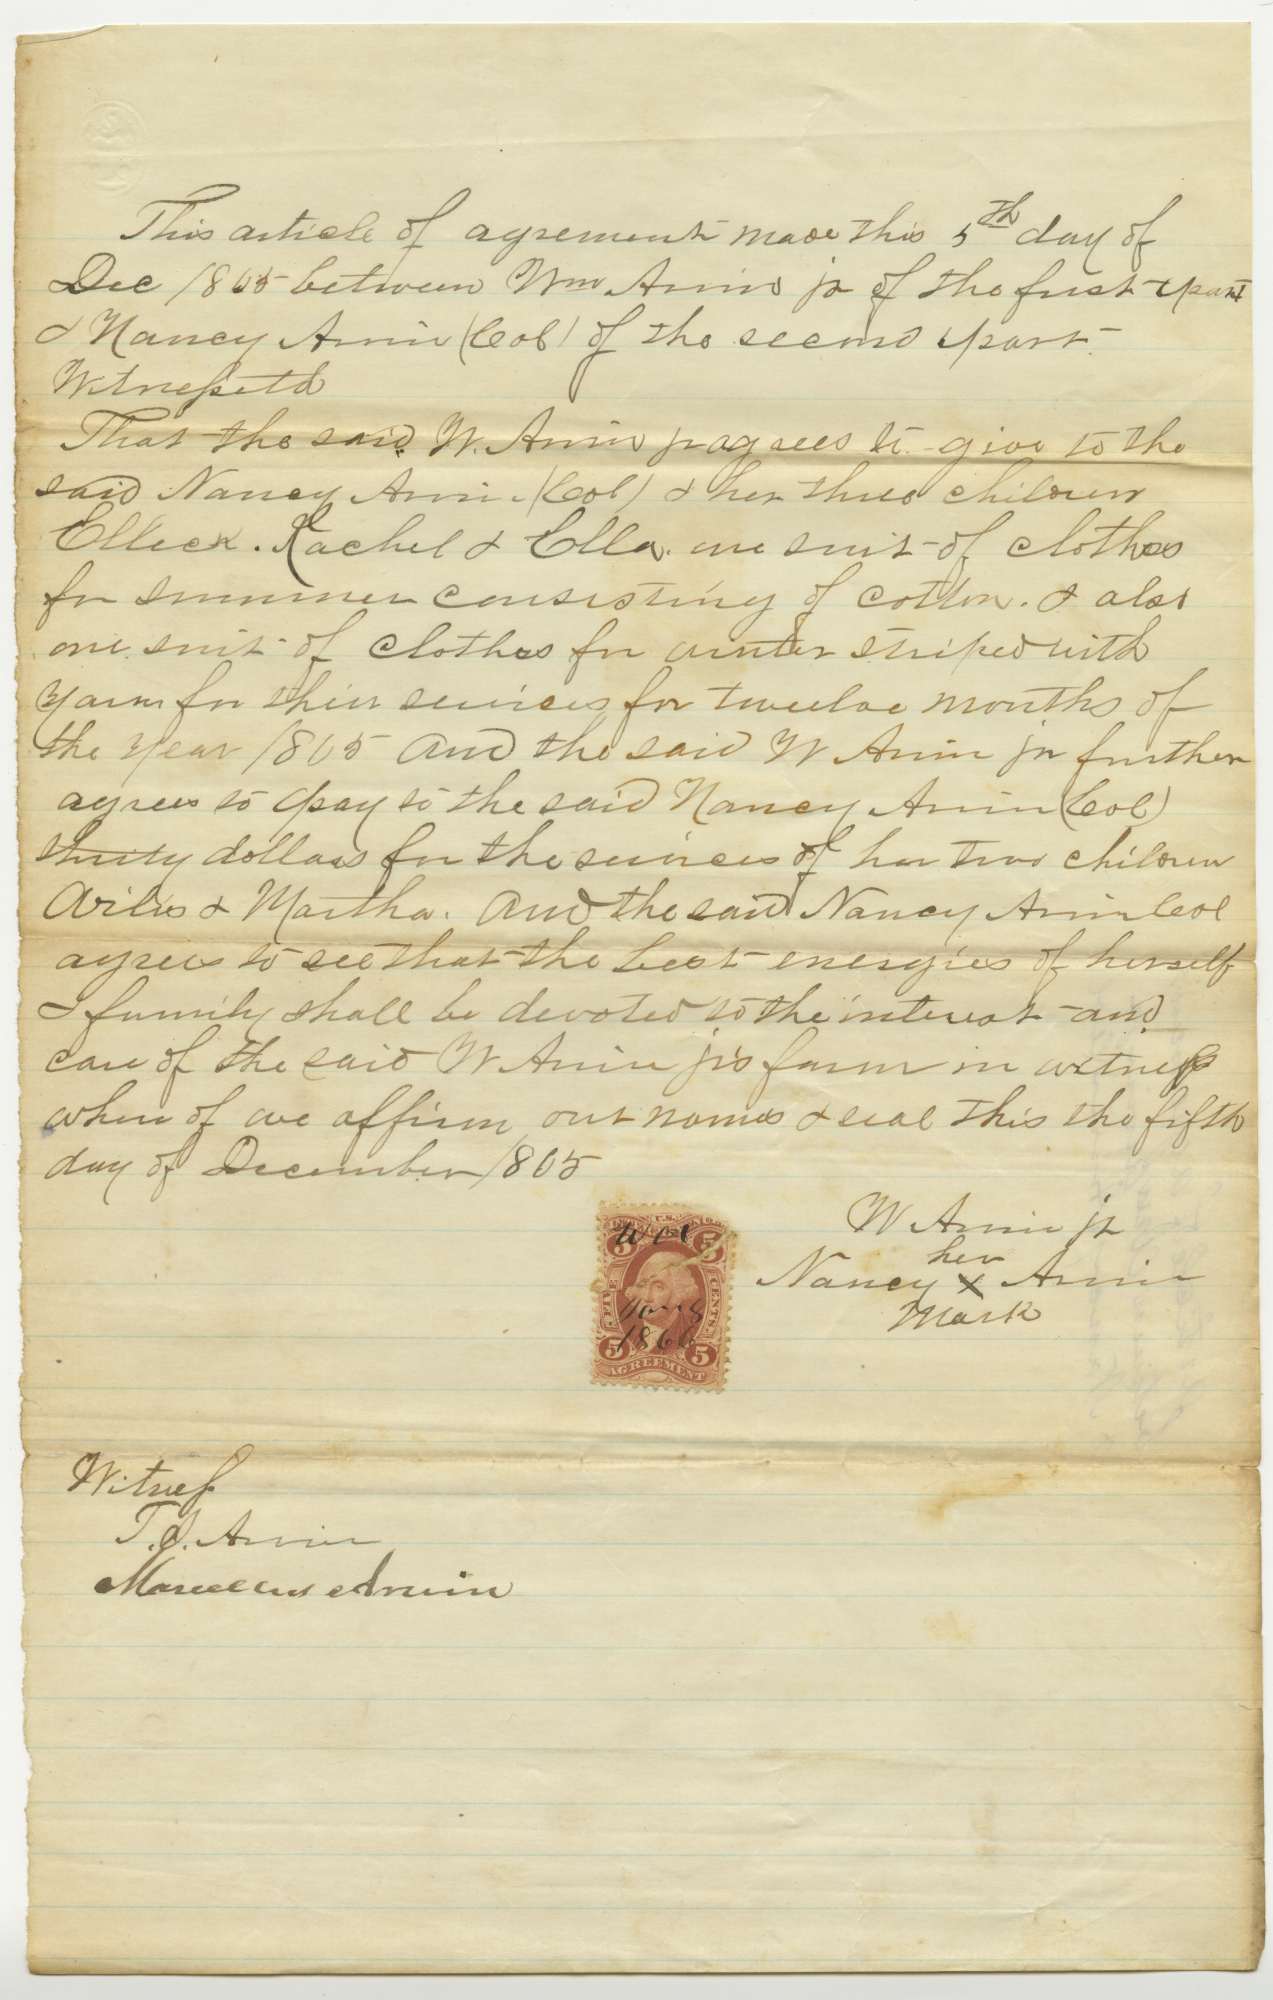 This article of agrement made this 5th day of
Dec 1865 between Wm Arvin jr of the first part
& Nancy Arvin (Col) of the second part
Witnesseth
That the said W. Arvin jr agrees to give to the
said Nancy Arvin (Col) & her three children
Elleck. Rachel & Ella. one suit of clothes
for summer consisting of cotton. & also
one suit of clothes for winter striped with
yarn for thier services for twelve months of
the year 1865 And the said W Arvin jr further
agrees to pay to the said Nancy Arvin (Col)
thirty dollars for the services of her two children
& Martha. And the said Nancy Arvin Col
agrees to see that the best energies of herself
& family shall be devoted to the interest and
care of the said W Arvin jr's farm in witness
where of we affirm our names & seal this the fifth
day of December 1865
W Arvin jr
her
Nancy x Arvin
Mark
INT. REV.
5 5
FIVE CENTS
1866
5 5
AGREEMENT
Witness
T. J. Arvin
Marcellus Arvin